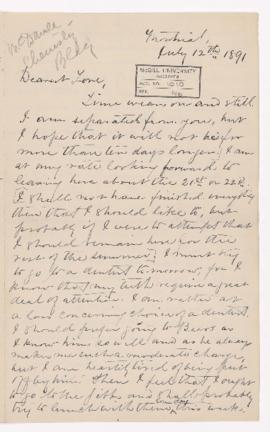 McDonald
Chemistry
Bldg
Montreal,
July 12th 1891
McGILL UNIVERSITY
ARCHIVES
ACC. NO. 1010
REF.
Dearest Love,
Time wears on and still
I am separated from you, but
I hope that it will not be for
more than ten days longer. I am
at any rate looking forward to
leaving here about the 21st or 22d.
I shall not have finished everything
then that I should like to, but
probably if I were to attempt that
I should remain here for the
rest of the summer. I must try
to go to a dentist tomorrow, for I
know that my teeth require a great
deal of attention. I am rather at
a loss concerning choice of a dentist.
I should prefer going to Beers as
I know him so well and as he always
makes me such a moderate charge,
but I am heartily tired of being part
of by him. Then I feel that I ought
to go to the and shall probably
try to lunch with them some day this week.